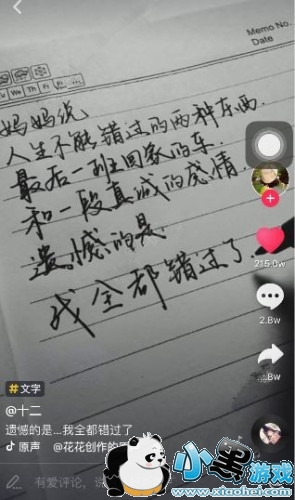 Memo No.
Date
We Th Fr
妈妈说
人生不能错过的两种东西.
最后一班回家的车.
和一段真诚的感情.
遗憾的是
我全都错过了
215.0w
2.8w
#文字
@十二
遗憾的是...我全都错过了
原声 @花花创作的原
有爱评论，说
小黑游戏
www.xiaohei.com